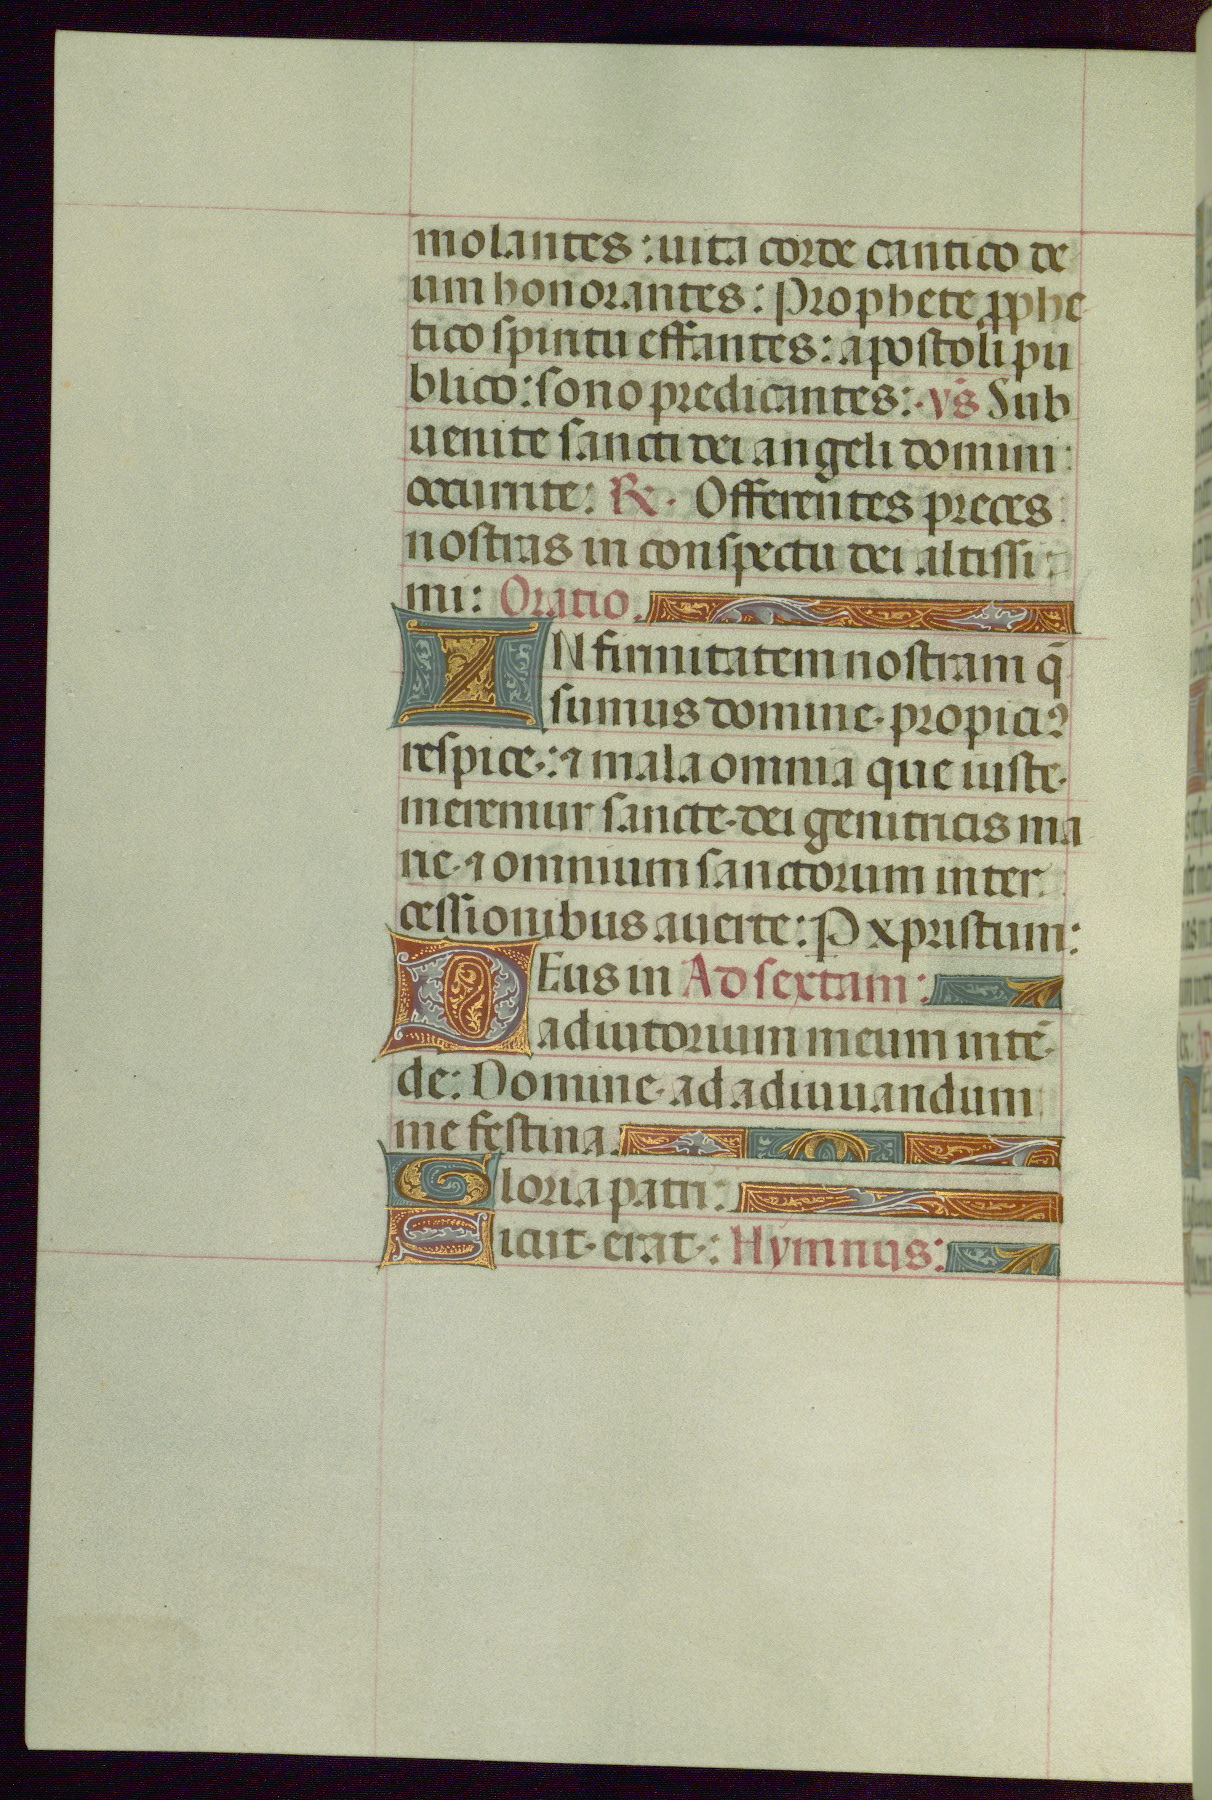 molantes: uita corde cantico de
um honorantes: Prophete pphe
tico spiritu effantes: apostoli pu
blico: sono predicantes: vs̄ Sub
uenite sancti dei angeli domini:
occurrite: R℟. Offerentes preces
nostras in conspectu dei altissi
mi: Oratio.
INfirmitatem nostram q̄
sumus domine propici⁹
respice: ⁊ mala omnia que iuste
meremur sancte dei genitricis ma
rie ⁊ omnium sanctorum inter
cessionibus auerte: P xpristum:
DEus in Ad sextam:
adiutorium meum intē
de: Domine ad adiuuandum
me festina.
Gloria patri:
Sicut erat: Hymnus: